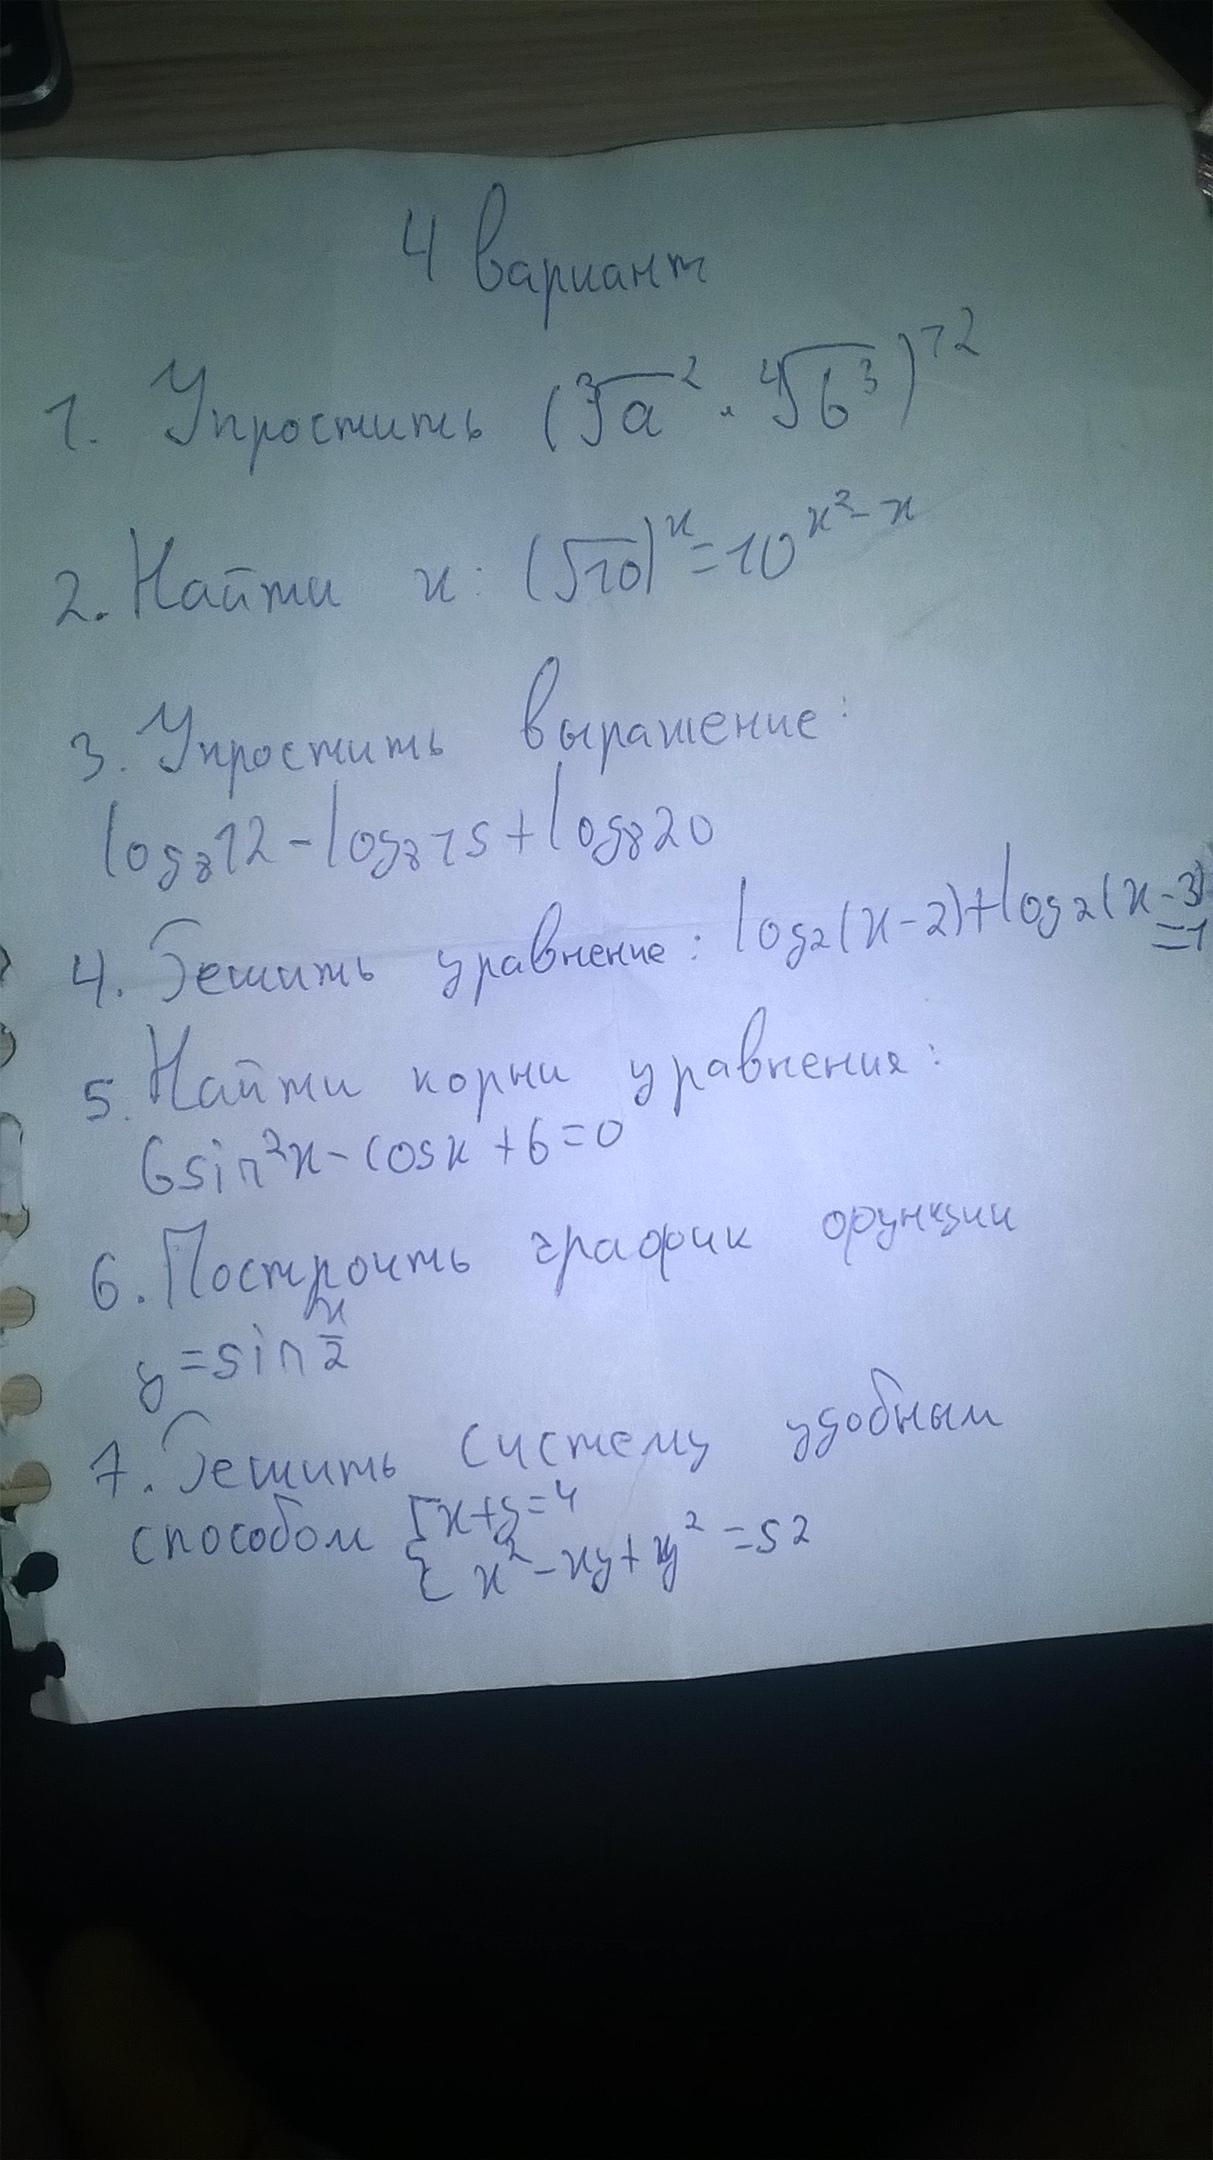 4 вариант
1. Упростить (∛a² · ∜b³)¹²
2. Найти x: (√10)ˣ = 10^(x²-x)
3. Упростить выражение:
log₈12 - log₈15 + log₈20
4. Решить уравнение: log₂(x-2)+log₂(x-3)
=1
5. Найти корни уравнения:
6sin²x - cosx + 6 = 0
6. Построить график функции
y = sin x/2
7. Решить систему удобным
способом { x+y=4
{ x² - xy + y² = 52